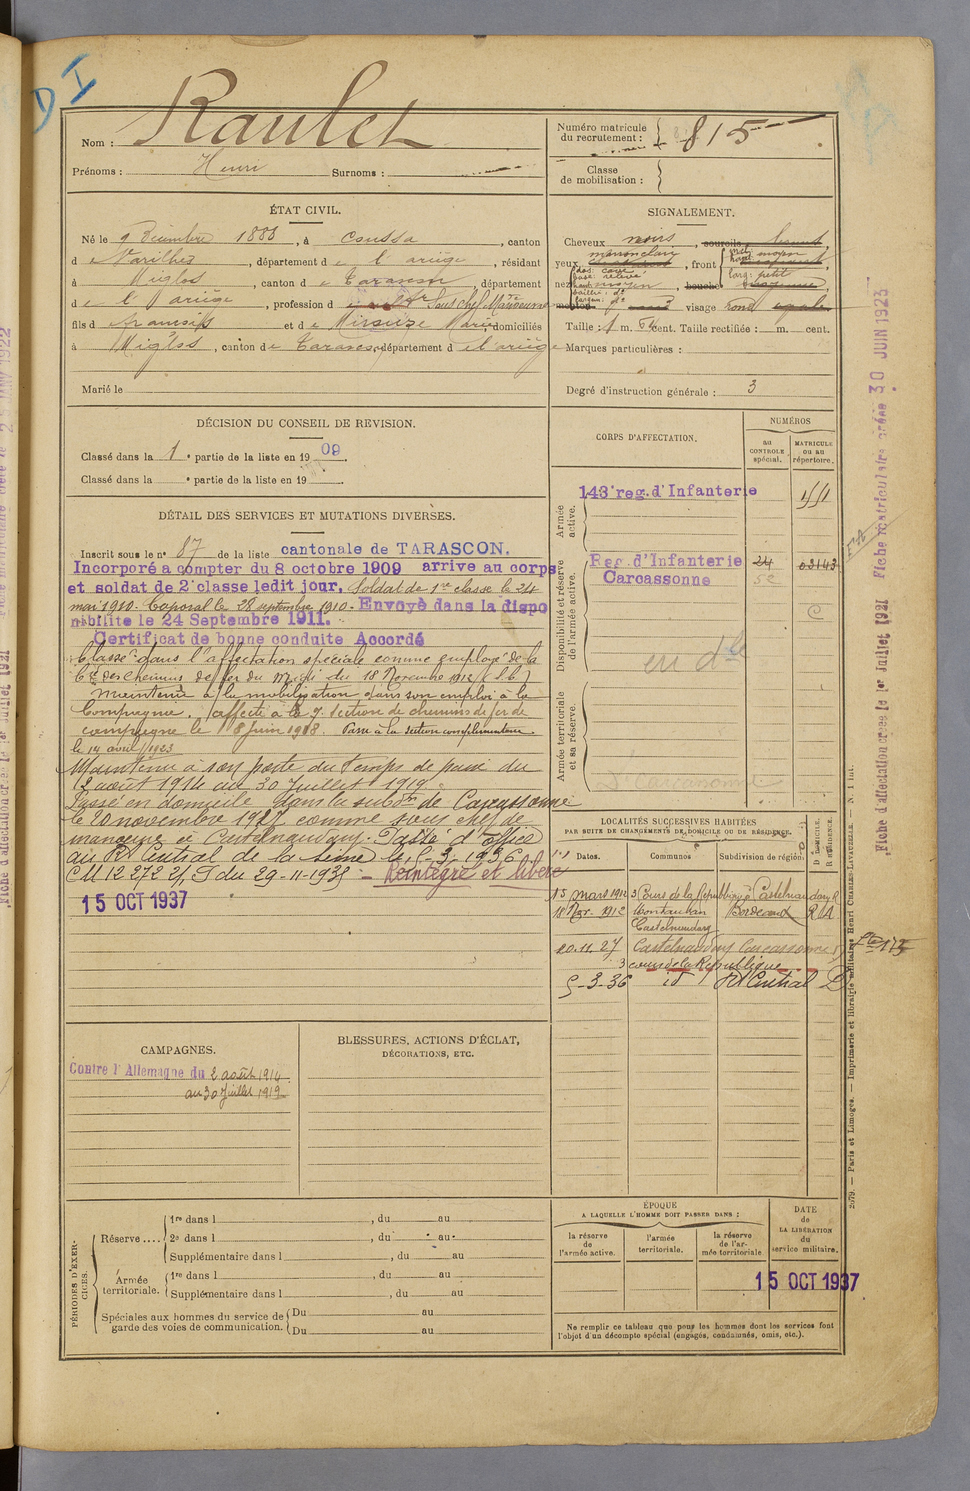 D I
Nom : Raulet
Prénoms : Henri Surnoms :
Numéro matricule du recrutement : 815
Classe de mobilisation :
ÉTAT CIVIL.
Né le 9 Décembre 1888, à Coussa, canton
d e Varilhes, département d e l'ariège, résidant
à Miglos, canton d e Tarascon, département
d e l'ariège, profession d Sous chef Manoeuvre
fils d e françois et d e Marie, domiciliés
à Miglos, canton d e Tarascon, département d e l'ariège
Marié le
SIGNALEMENT.
Cheveux noirs, sourcils
yeux marron clair, front
nez moyen, bouche
menton visage rond
Taille : 1 m. 64 cent. Taille rectifiée : m. cent.
Marques particulières :
Degré d'instruction générale : 3
DÉCISION DU CONSEIL DE REVISION.
Classé dans la 1e partie de la liste en 1909.
Classé dans la e partie de la liste en 19
DÉTAIL DES SERVICES ET MUTATIONS DIVERSES.
Inscrit sous le no 87 de la liste cantonale de TARASCON.
Incorporé a compter du 8 octobre 1909 arrive au corps
et soldat de 2e classe ledit jour, Soldat de 1re classe le 24
mai 1910. Caporal le 28 septembre 1910. Envoyé dans la dispo
nibilite le 24 Septembre 1911.
Certificat de bonne conduite Accordé
Classé dans l'affectation spéciale comme employé de la
Cie des chemins de fer du Midi du 18 Novembre 1912
Maintenu à la mobilisation dans son emploi à la
Compagnie. affecté à la 9e section de chemins de fer de
campagne le 8 Juin 1918. Passé à la section complémentaire
le 14 avril 1923
Maintenu à son poste du temps de paix du
2 août 1914 au 30 Juillet 1919.
Passé en domicile dans la subdon de Carcassonne
le 20 novembre 1927 comme sous chef de
manoeuvre à Castelnaudary. Passé d'office
au R Central de la Seine le 5-3-1936
CM 12272 du 29-11-1935 - Réintégré et libéré
15 OCT 1937
CORPS D'AFFECTATION.
NUMÉROS
au CONTROLE spécial.
MATRICULE ou au répertoire.
Armée active.
143e reg. d'Infanterie
Disponibilité et réserve de l'armée active.
Reg. d'Infanterie 24 02143
Carcassonne
en dle
Armée territoriale et sa réserve.
LOCALITÉS SUCCESSIVES HABITÉES
PAR SUITE DE CHANGEMENTS DE DOMICILE OU DE RÉSIDENCE.
Dates. Communes Subdivision de région. D DOMICILE. R RÉSIDENCE.
15 mars 1912 3 Cours de la République Castelnaudary R
18 Nov. 1912 Montauban Bordeaux R
Castelnaudary
20.11.27 Castelnaudary Carcassonne
3 cours de la République
5-3-36 id Rt Central D
CAMPAGNES.
Contre l'Allemagne du 2 août 1914
au 30 Juillet 1919
BLESSURES, ACTIONS D'ÉCLAT,
DÉCORATIONS, ETC.
PÉRIODES D'EXERCICES.
Réserve....
1re dans l , du au
2e dans l , du au
Supplémentaire dans l , du au
Armée territoriale.
1re dans l , du au
Supplémentaire dans l , du au
Spéciales aux hommes du service de garde des voies de communication.
Du au
Du au
ÉPOQUE
A LAQUELLE L'HOMME DOIT PASSER DANS :
la réserve de l'armée active.
l'armée territoriale.
la réserve de l'armée territoriale
DATE de LA LIBÉRATION du service militaire.
15 OCT 1937
Ne remplir ce tableau que pour les hommes dont les services font
l'objet d'un décompte spécial (engagés, condamnés, omis, etc.).
2679. — Paris et Limoges. — Imprimerie et librairie militaires Henri CHARLES-LAVAUZELLE. — N. 1 int.
Fiche d'affectation créée le 1er Juillet 1921 Fiche matriculaire créée 30 JUIN 1923